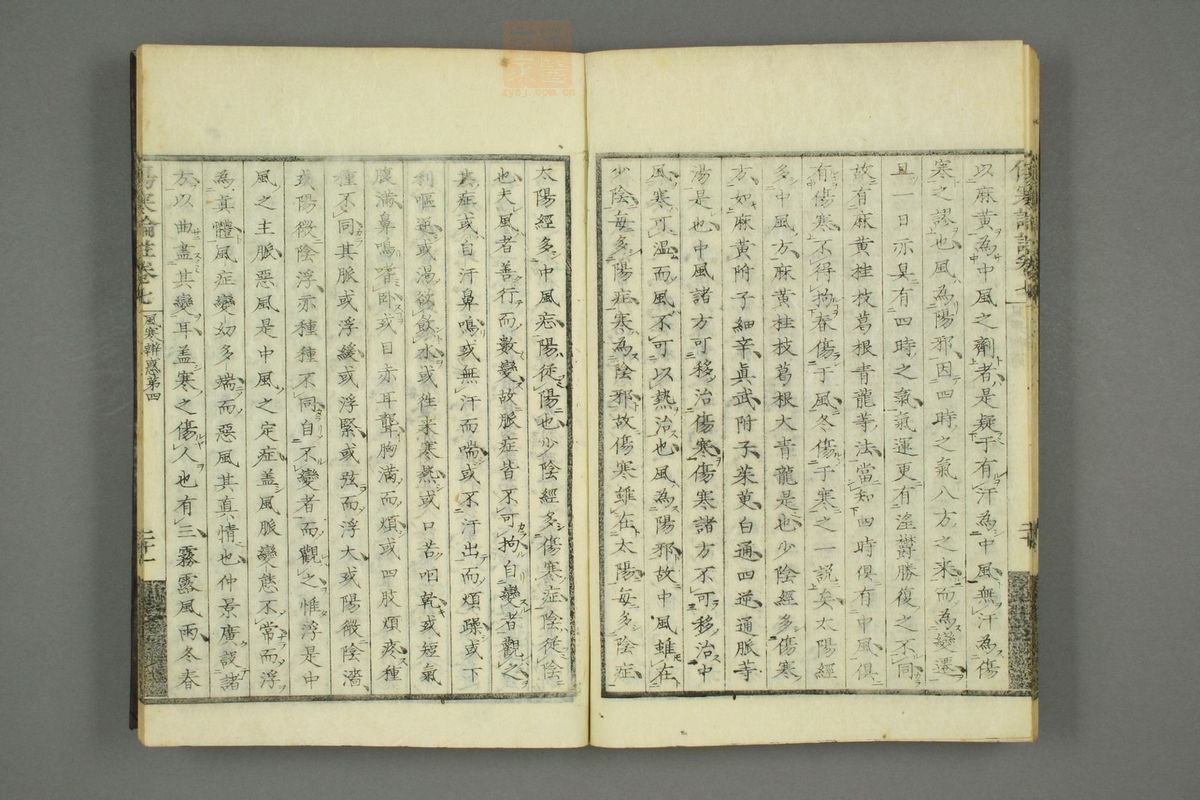 以麻黄為中風之劑者是疑于有汗為中風無汗為傷
寒之謬也風為陽邪因四時之氣八方之來而為變還
且一日亦具有四時之氣氣運更有淫鬱勝復之不同
故有麻黄桂枝葛根青龍等法當知四時俱有中風俱
有傷寒不得拘春傷于風冬傷于寒之一說矣太陽經
多中風方麻黄桂枝葛根大青龍是也少陰經多傷寒
方如麻黄附子細辛眞武附子茱萸白通四逆通脈等
湯是也中風諸方可移治傷寒傷寒諸方不可移治中
風寒可溫而風不可以熱治也風為陽邪故中風雖在
少陰每多陽症寒為陰邪故傷寒雖在太陽每多陰症
太陽經多中風症陽從陽也少陰經多傷寒症陰從陰
也夫風者善行而數變故脈症皆不可拘自變者觀之
其症或自汗鼻鳴或無汗而喘或不汗出而煩躁或下
利嘔逆或渴欲飲水或徃来寒熱或口苦咽乾或短氣
腹滿鼻鳴嗜卧或目赤耳聾胸滿而煩或四肢煩疼種
種不同其脈或浮緩或浮緊或弦而浮大或陽微陰濇
或陽微陰浮亦種種不同自不變者而觀之惟浮是中
風之主脈惡風是中風之定症盖風脈變態不常而浮
為真體風症變幻多端而惡風其真情也仲景廣設諸
方以曲盡其變耳盖寒之傷人也有三霧露風雨冬春
傷寒論註卷七
風寒辨惑第四
二十一